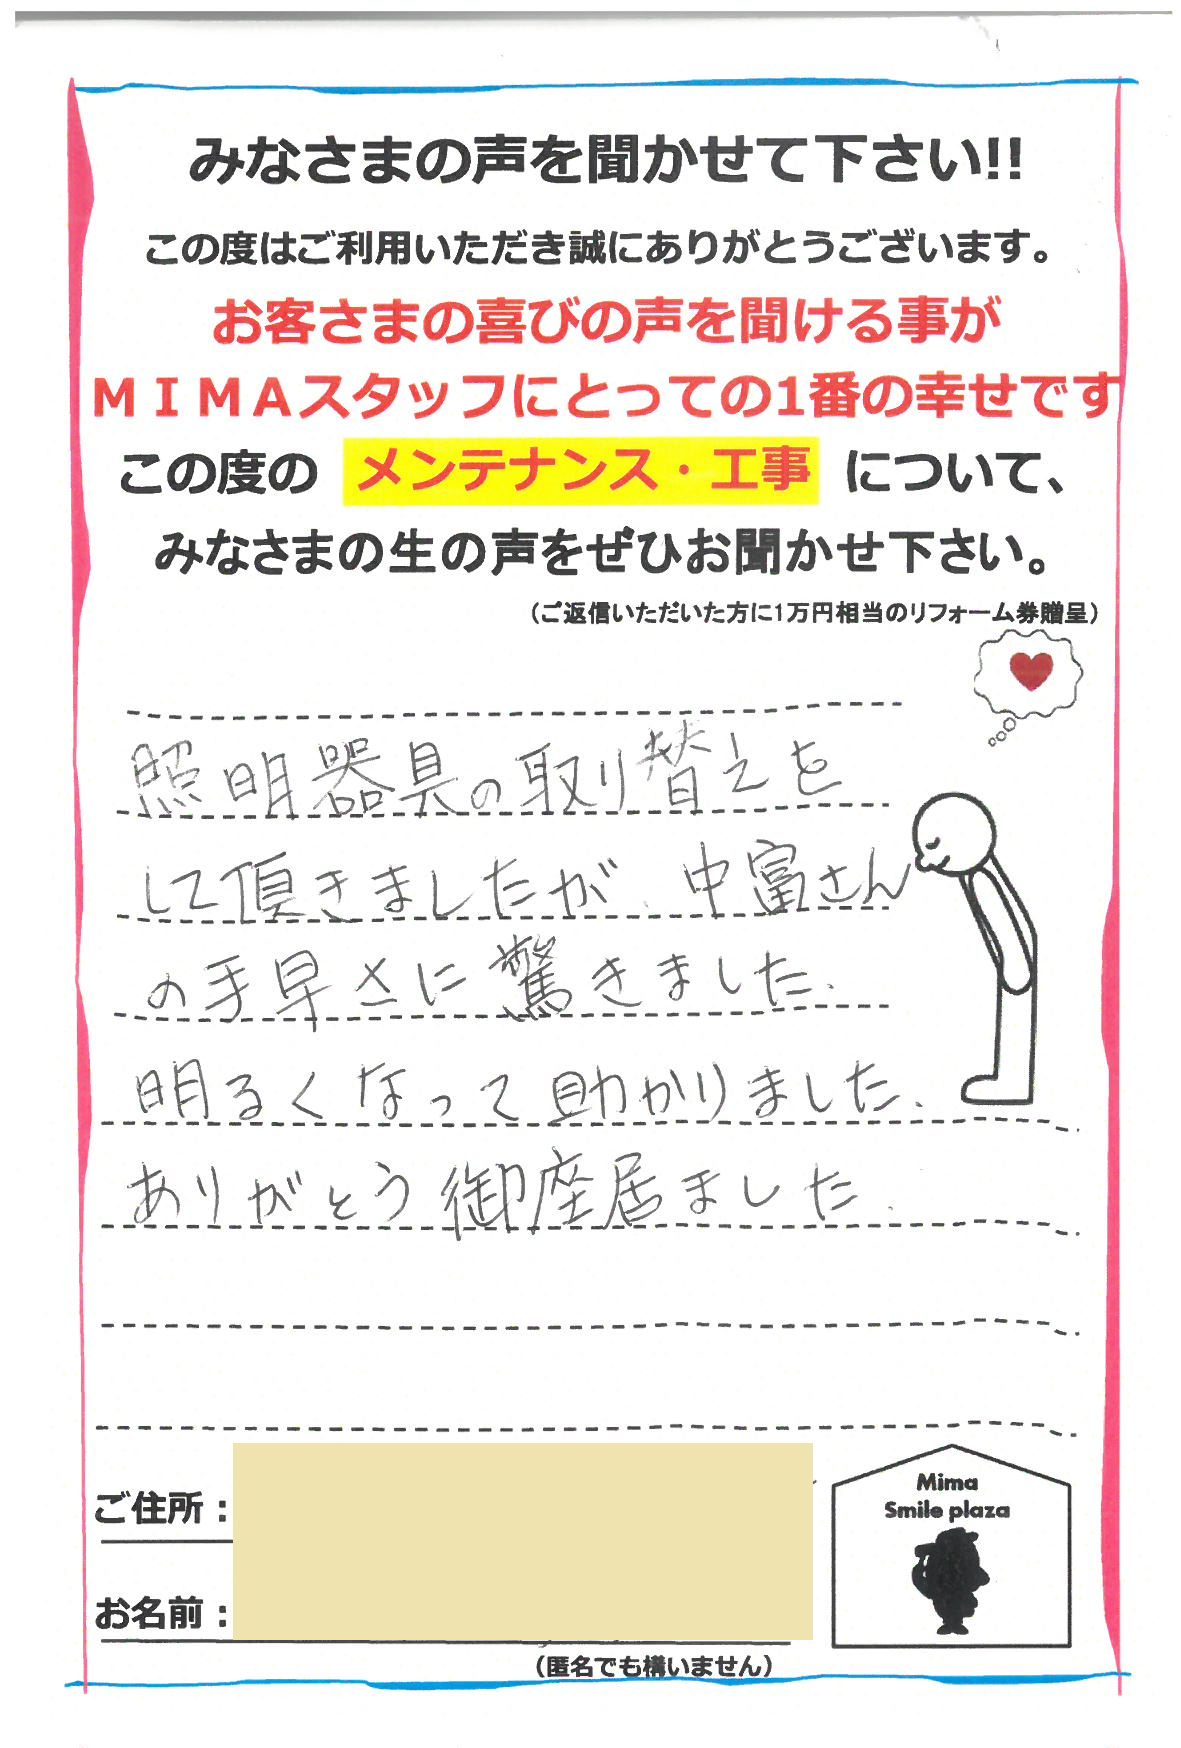 みなさまの声を聞かせて下さい!!
この度はご利用いただき誠にありがとうございます。
お客さまの喜びの声を聞ける事が
ＭＩＭＡスタッフにとっての1番の幸せです
この度の メンテナンス・工事 について、
みなさまの生の声をぜひお聞かせ下さい。
（ご返信いただいた方に1万円相当のリフォーム券贈呈）
照明器具の取り替えを
して頂きましたが、中富さん
の手早さに驚きました.
明るくなって助かりました.
ありがとう御座居ました.
ご住所：
お名前：
（匿名でも構いません）
Mima
Smile plaza